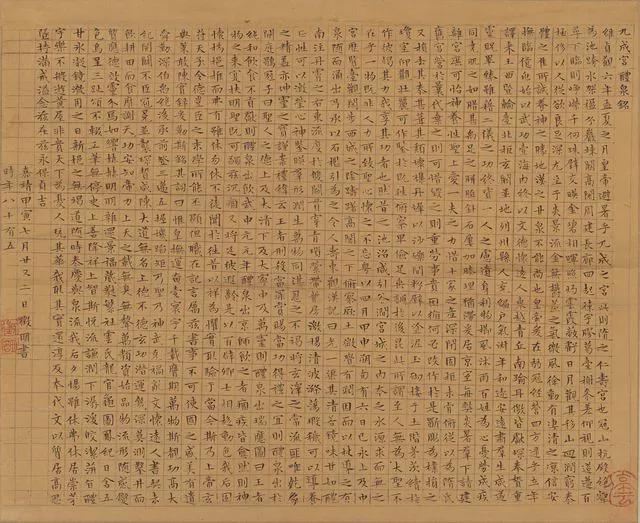 九成宮醴泉銘
維貞觀六年孟夏之月皇帝避暑乎九成之宮此則隋之仁壽宮也冠山抗殿絕壑
為池跨水架楹分巖竦闕高閣周建長廊四起棟宇膠葛臺榭參差仰視則迢遰百
尋下臨則崢嶸千仞珠璧交映金碧相暉照灼雲霞蔽虧日月觀其移山迴澗窮泰
極侈以人從欲良足深尤至於炎景流金無鬱蒸之氣微風徐動有淒清之涼信安
體之佳所誠養神之勝地漢之甘泉不能尚也皇帝爰在弱冠經營四方逮乎立年
撫臨億兆始以武功壹海內終以文德懷遠人東越青丘南踰丹徼皆獻琛奉贄重
譯來王西暨輪臺北拒玄闕並地列州縣人充編戶氣淑年和邇安遠肅群生咸遂
靈貺畢臻雖藉二儀之功終資一人之慮遺身利物櫛風沐雨百姓為心憂勞成疾
同堯肌之如腊甚禹足之胼胝針石屢加腠理猶滯爰居京室每弊炎暑群下請建
離宮庶可怡神養性聖上愛一夫之力惜十家之產深閉固拒未肯俯從以為隋氏
舊宮營於曩代棄之則可惜毀之則重勞事貴因循何必改作於是斲彫為樸損之
又損去其泰甚葺其頹壞雜丹墀以沙礫間粉壁以塗泥玉砌接於土階茅茨續於
瓊室仰觀壯麗可作鑒於既往俯察卑儉足垂訓於後昆此所謂至人無為大聖不
作彼竭其力我享其功者也然昔之池沼咸引谷澗宮城之內本乏水源求而無之
在乎一物既非人力所致聖心懷之不忘粵以四月甲申朔旬有六日己亥上及中
宮歷覽臺觀閒步西城之陰躊躇高閣之下俯察厥土微覺有潤因而以杖導之有
泉隨而涌出乃承以石檻引為之令人壽東觀漢記曰光一渠其清若鏡味甘如醴
南注丹霄之右東流度於雙闕貫穿青瑣縈帶紫房激揚清波滌蕩瑕穢可以導養
正性可以澂瑩心神鑒映群形潤生萬物同湛恩之不竭將玄澤之常流匪唯乾象
之精蓋亦坤靈之寶謹案禮緯云王者刑殺當罪賞錫當功得禮之宜則醴泉出於
闕庭鶡冠子曰聖人之德上及太清下及太寧中及萬靈則醴泉出瑞應圖曰王者
純和飲食不貢獻則醴泉出飲武中元元年醴泉出京師飲之者痼疾皆愈然則神
物之來寔扶明聖既可蠲茲沉痼又將延彼遐齡是以百辟卿士相趨動色我后固
懷撝挹推而弗有雖休勿休不徒聞於往昔以祥為懼實取驗於當今斯乃上帝玄
符天子令德豈臣之末學所能丕顯但職在記言屬茲書事不可使國之盛美有遺
典策敢陳實錄爰勒斯銘其詞曰惟皇撫運奄壹寰宇千載膺期萬物斯睹功高大
舜勤深伯禹絕後承前登三邁五握機蹈矩乃聖乃神武克禍亂文懷遠人書契未
紀開闢不臣冠冕並襲琛贄咸陳大道無名上德不德玄功潛運幾深莫測鑿井而
飲耕田而食靡謝天功安知帝力上天之載無臭無聲萬類資始品物流形隨感變
質應德效靈介焉如響赫赫明明雜遝景福葳蕤繁祉雲氏龍官龜圖鳳紀日含五
色烏呈三趾頌不輟工筆無停史上善降祥上智斯悅流謙潤下潺湲皎潔蓱旨醴
甘冰凝鏡澈用之日新挹之無竭道隨時泰慶與泉流我后夕惕雖休弗休居崇茅
宇樂不般遊黃屋非貴天下為憂人玩其華我取其實還淳反本代文以質居高思
墜持滿戒溢念茲在茲永保貞吉
嘉靖甲寅七月廿又二日徵明書
時年八十有五